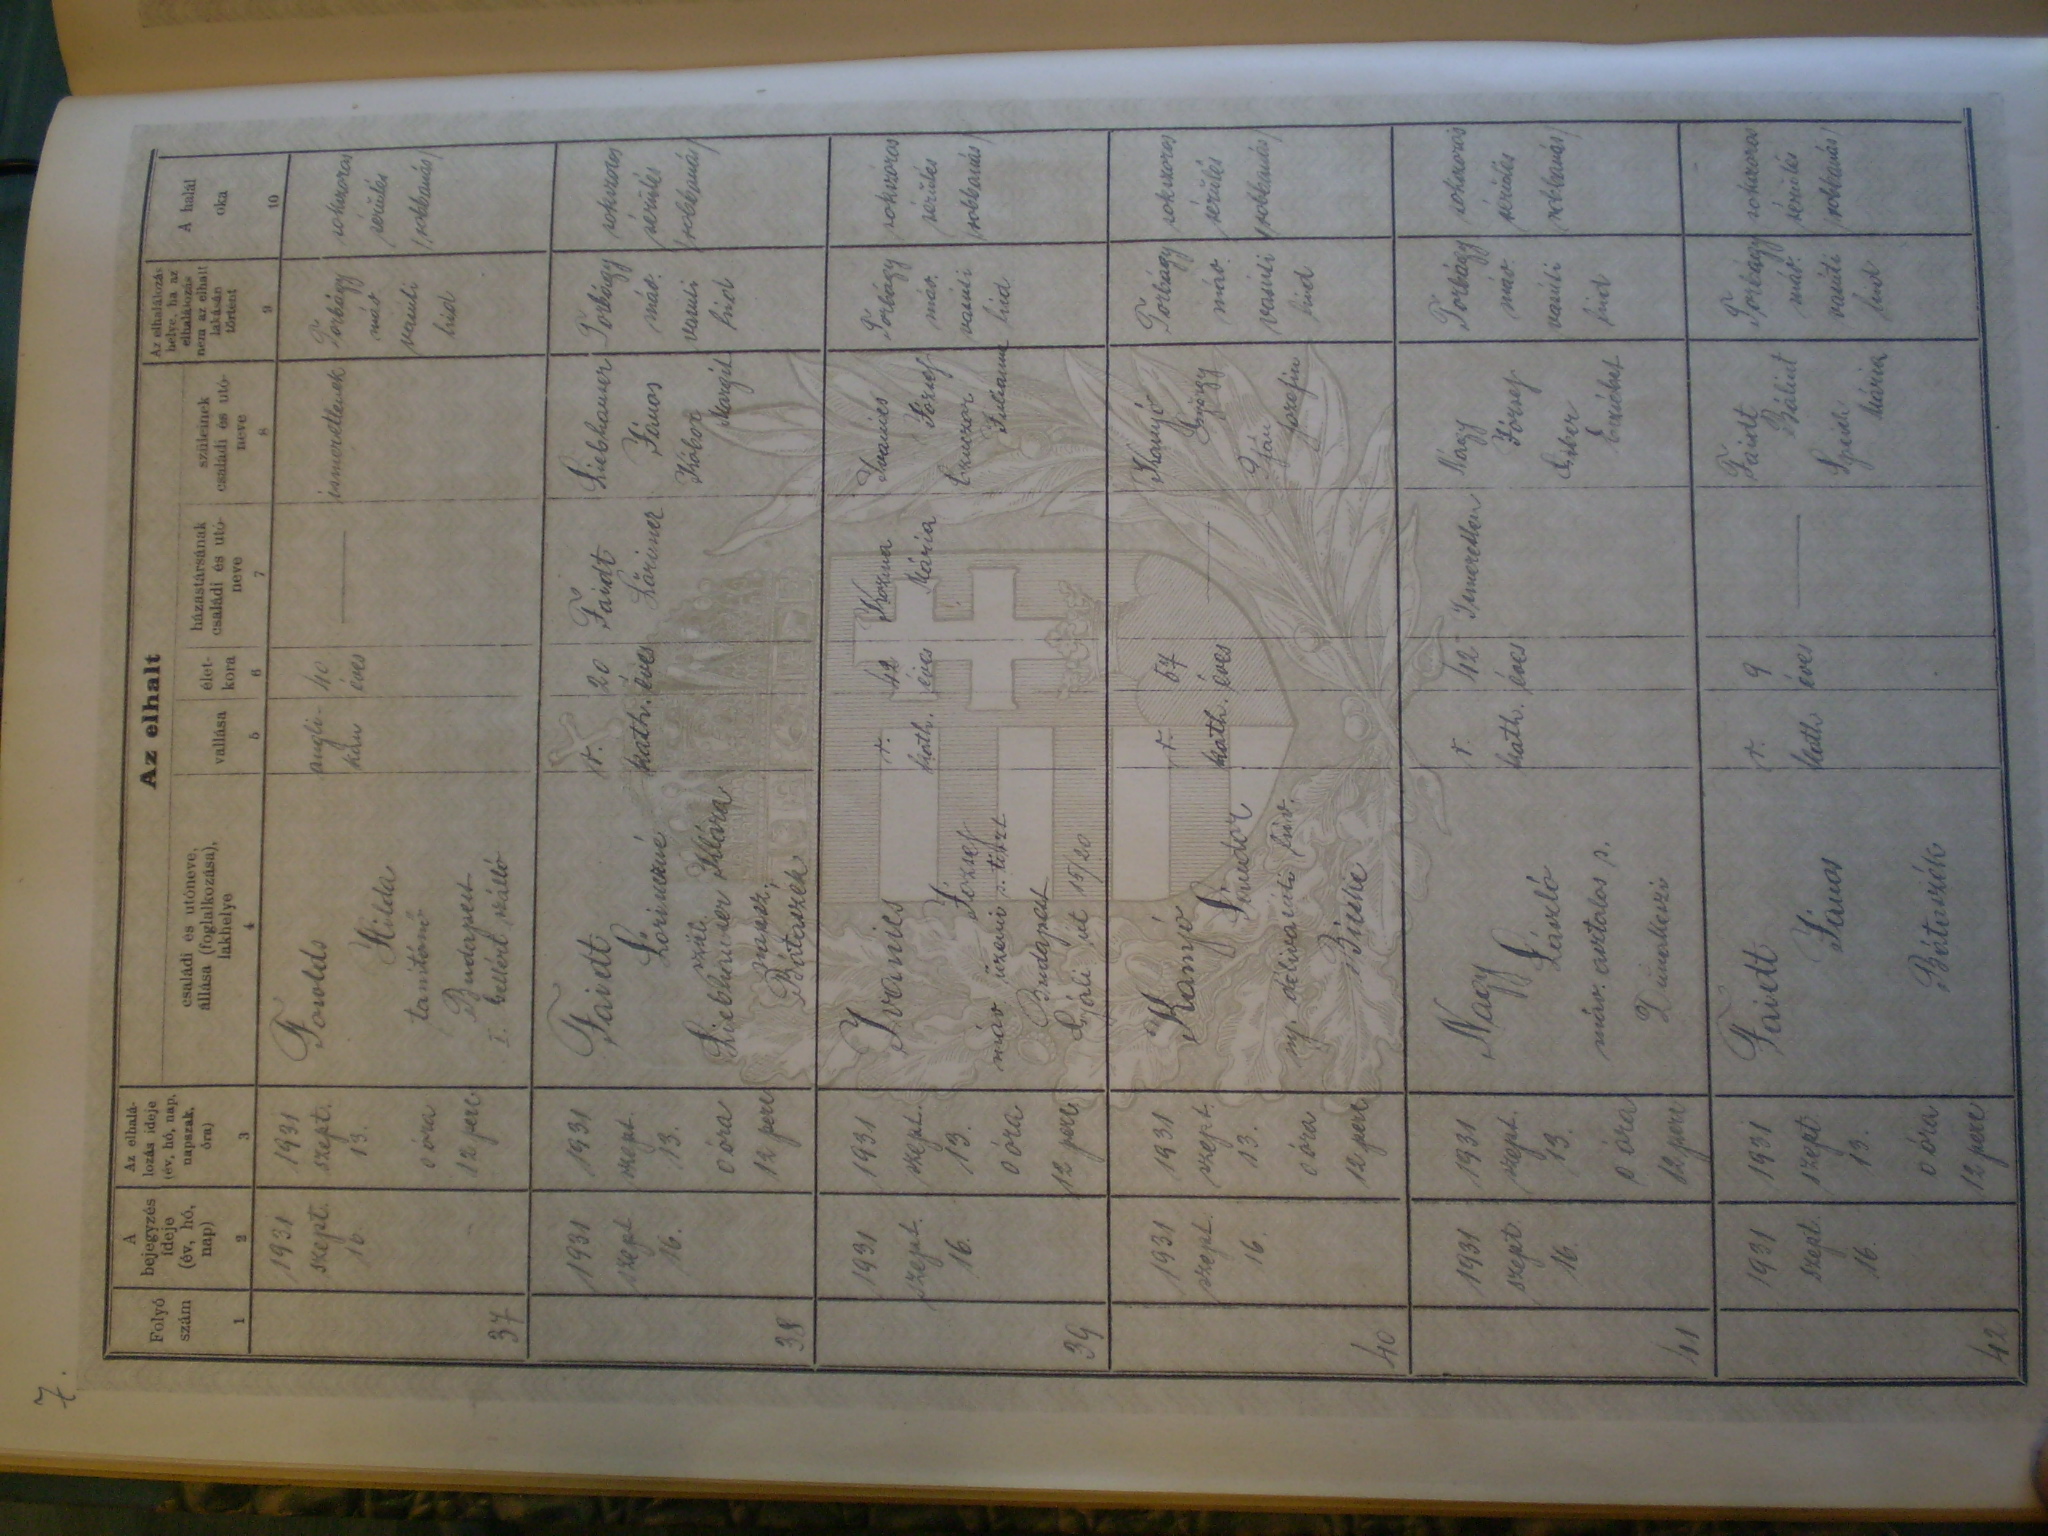 7.
Az elhalt
Folyó
szám
A
bejegyzés
ideje
(év, hó,
nap)
Az elhalá-
lozás ideje
(év, hó, nap,
napszak,
óra)
családi és utóneve,
állása (foglalkozása),
lakhelye
vallása
élet-
kora
házastársának
családi és utó-
neve
szüleinek
családi és utó-
neve
Az elhalálozás
helye, ha az
elhalálozás
nem az elhalt
lakásán
történt
A halál
oka
1
2
3
4
5
6
7
8
9
10
37
1931
szept.
16.
1931
szept.
13.
0 óra
12 perc
Hilda
tanítónő
Budapest
I. Gellért szálló
angli-
kán
40
éves
—
ismeretlenek
Torbágy
máv
vasúti
híd
sokszoros
sérülés
/robbanás/
38
1931
szept.
16.
1931
szept.
13.
0 óra
12 perc
Lőrinczné
szül.
Liebhauser Klára
Bátaszék
r.
kath.
20
éves
Lőrincz
Liebhauser
János
Kóbor
Margit
Torbágy
máv.
vasúti
híd
sokszoros
sérülés
/robbanás/
39
1931
szept.
16.
1931
szept.
13.
0 óra
12 perc
Ivanics
József
máv üzemi s. tiszt
Budapest
út 15/20
r.
kath.
42
éves
Kozma
Mária
Ivanics
József
Julianna
Torbágy
máv.
vasúti
híd
sokszoros
sérülés
/robbanás/
40
1931
szept.
16.
1931
szept.
13.
0 óra
12 perc
Kanyó
Sándor
Bicske
r.
kath.
57
éves
—
Kanyó
György
Jozefin
Torbágy
máv.
vasúti
híd
sokszoros
sérülés
/robbanás/
41
1931
szept.
16.
1931
szept.
13.
0 óra
12 perc
Nagy
László
máv. asztalos s.
Dunakeszi
r.
kath.
42
éves
Ismeretlen
Nagy
József
Erzsébet
Torbágy
máv.
vasúti
híd
sokszoros
sérülés
robbanás/
42
1931
szept.
16.
1931
szept.
13.
0 óra
12 perc
János
Bátaszék
r.
kath
9
éves
—
Bálint
Mária
Torbágy
máv.
vasúti
híd
sokszoros
sérülés
/robbanás/